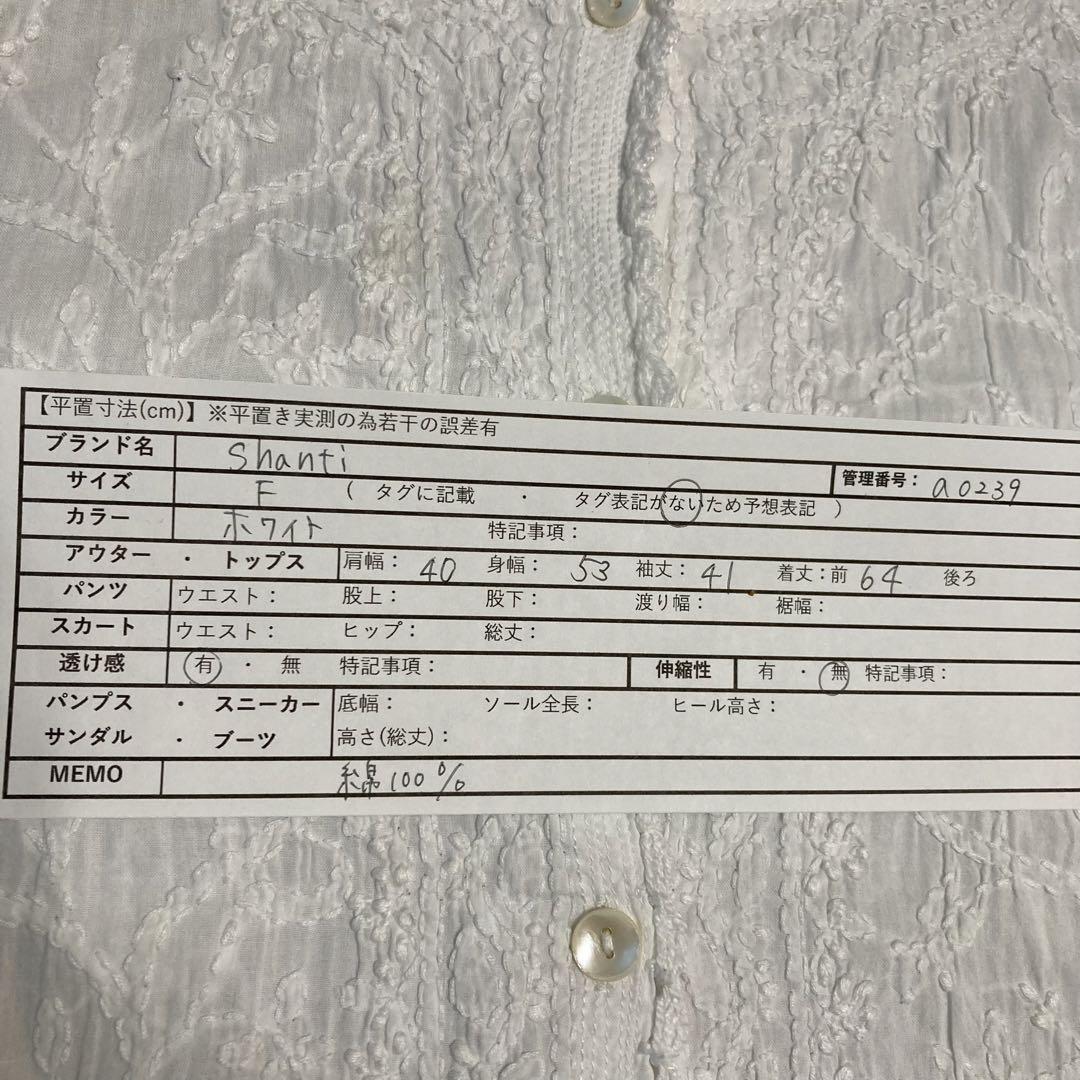 【平置寸法(cm)】※平置き実測の為若干の誤差有
ブランド名 Shanti 管理番号: a0239
サイズ F ( タグに記載 ・ タグ表記がないため予想表記 )
カラー ホワイト 特記事項:
アウター ・ トップス 肩幅: 40 身幅: 53 袖丈: 41 着丈:前 64 後ろ
パンツ ウエスト: 股上: 股下: 渡り幅: 裾幅:
スカート ウエスト: ヒップ: 総丈:
透け感 有 ・ 無 特記事項: 伸縮性 有 ・ 無 特記事項:
パンプス ・ スニーカー 底幅: ソール全長: ヒール高さ:
サンダル ・ ブーツ 高さ(総丈):
MEMO 綿100%